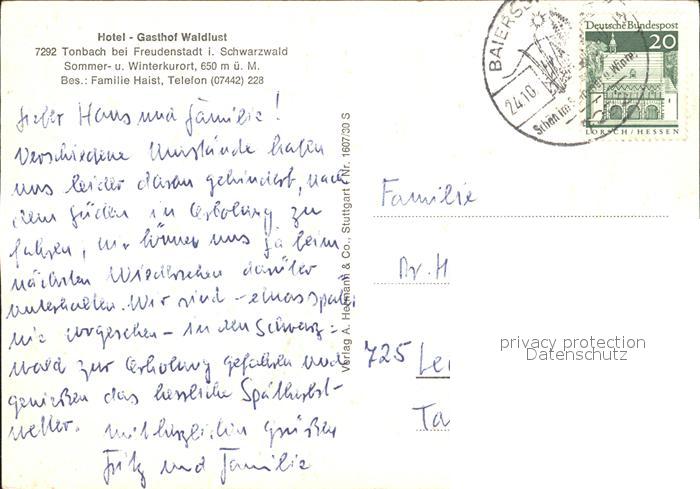 Hotel - Gasthof Waldlust
7292 Tonbach bei Freudenstadt i. Schwarzwald
Sommer- u. Winterkurort, 650 m ü. M.
Bes.: Familie Haist, Telefon (07442) 228
Lieber Hans und Familie!
Verschiedene Umstände haben
uns leider daran gehindert, nach
dem Süden in Erholung zu
fahren, wir können uns ja beim
nächsten Wiedersehen darüber
unterhalten. Wir sind - etwas später
wie vorgesehen - in den Schwarz=
wald zur Erholung gefahren und
genießen das herrliche Spätherbst-
wetter. mit herzlichen Grüßen
Fritz und Familie
Verlag A. Hettmann & Co., Stuttgart - Nr. 1607/30 S
BAIERS
24.10.
Deutsche Bundespost
20
LORSCH/HESSEN
Familie
Dr. H
725 Le
Ta
privacy protection
Datenschutz